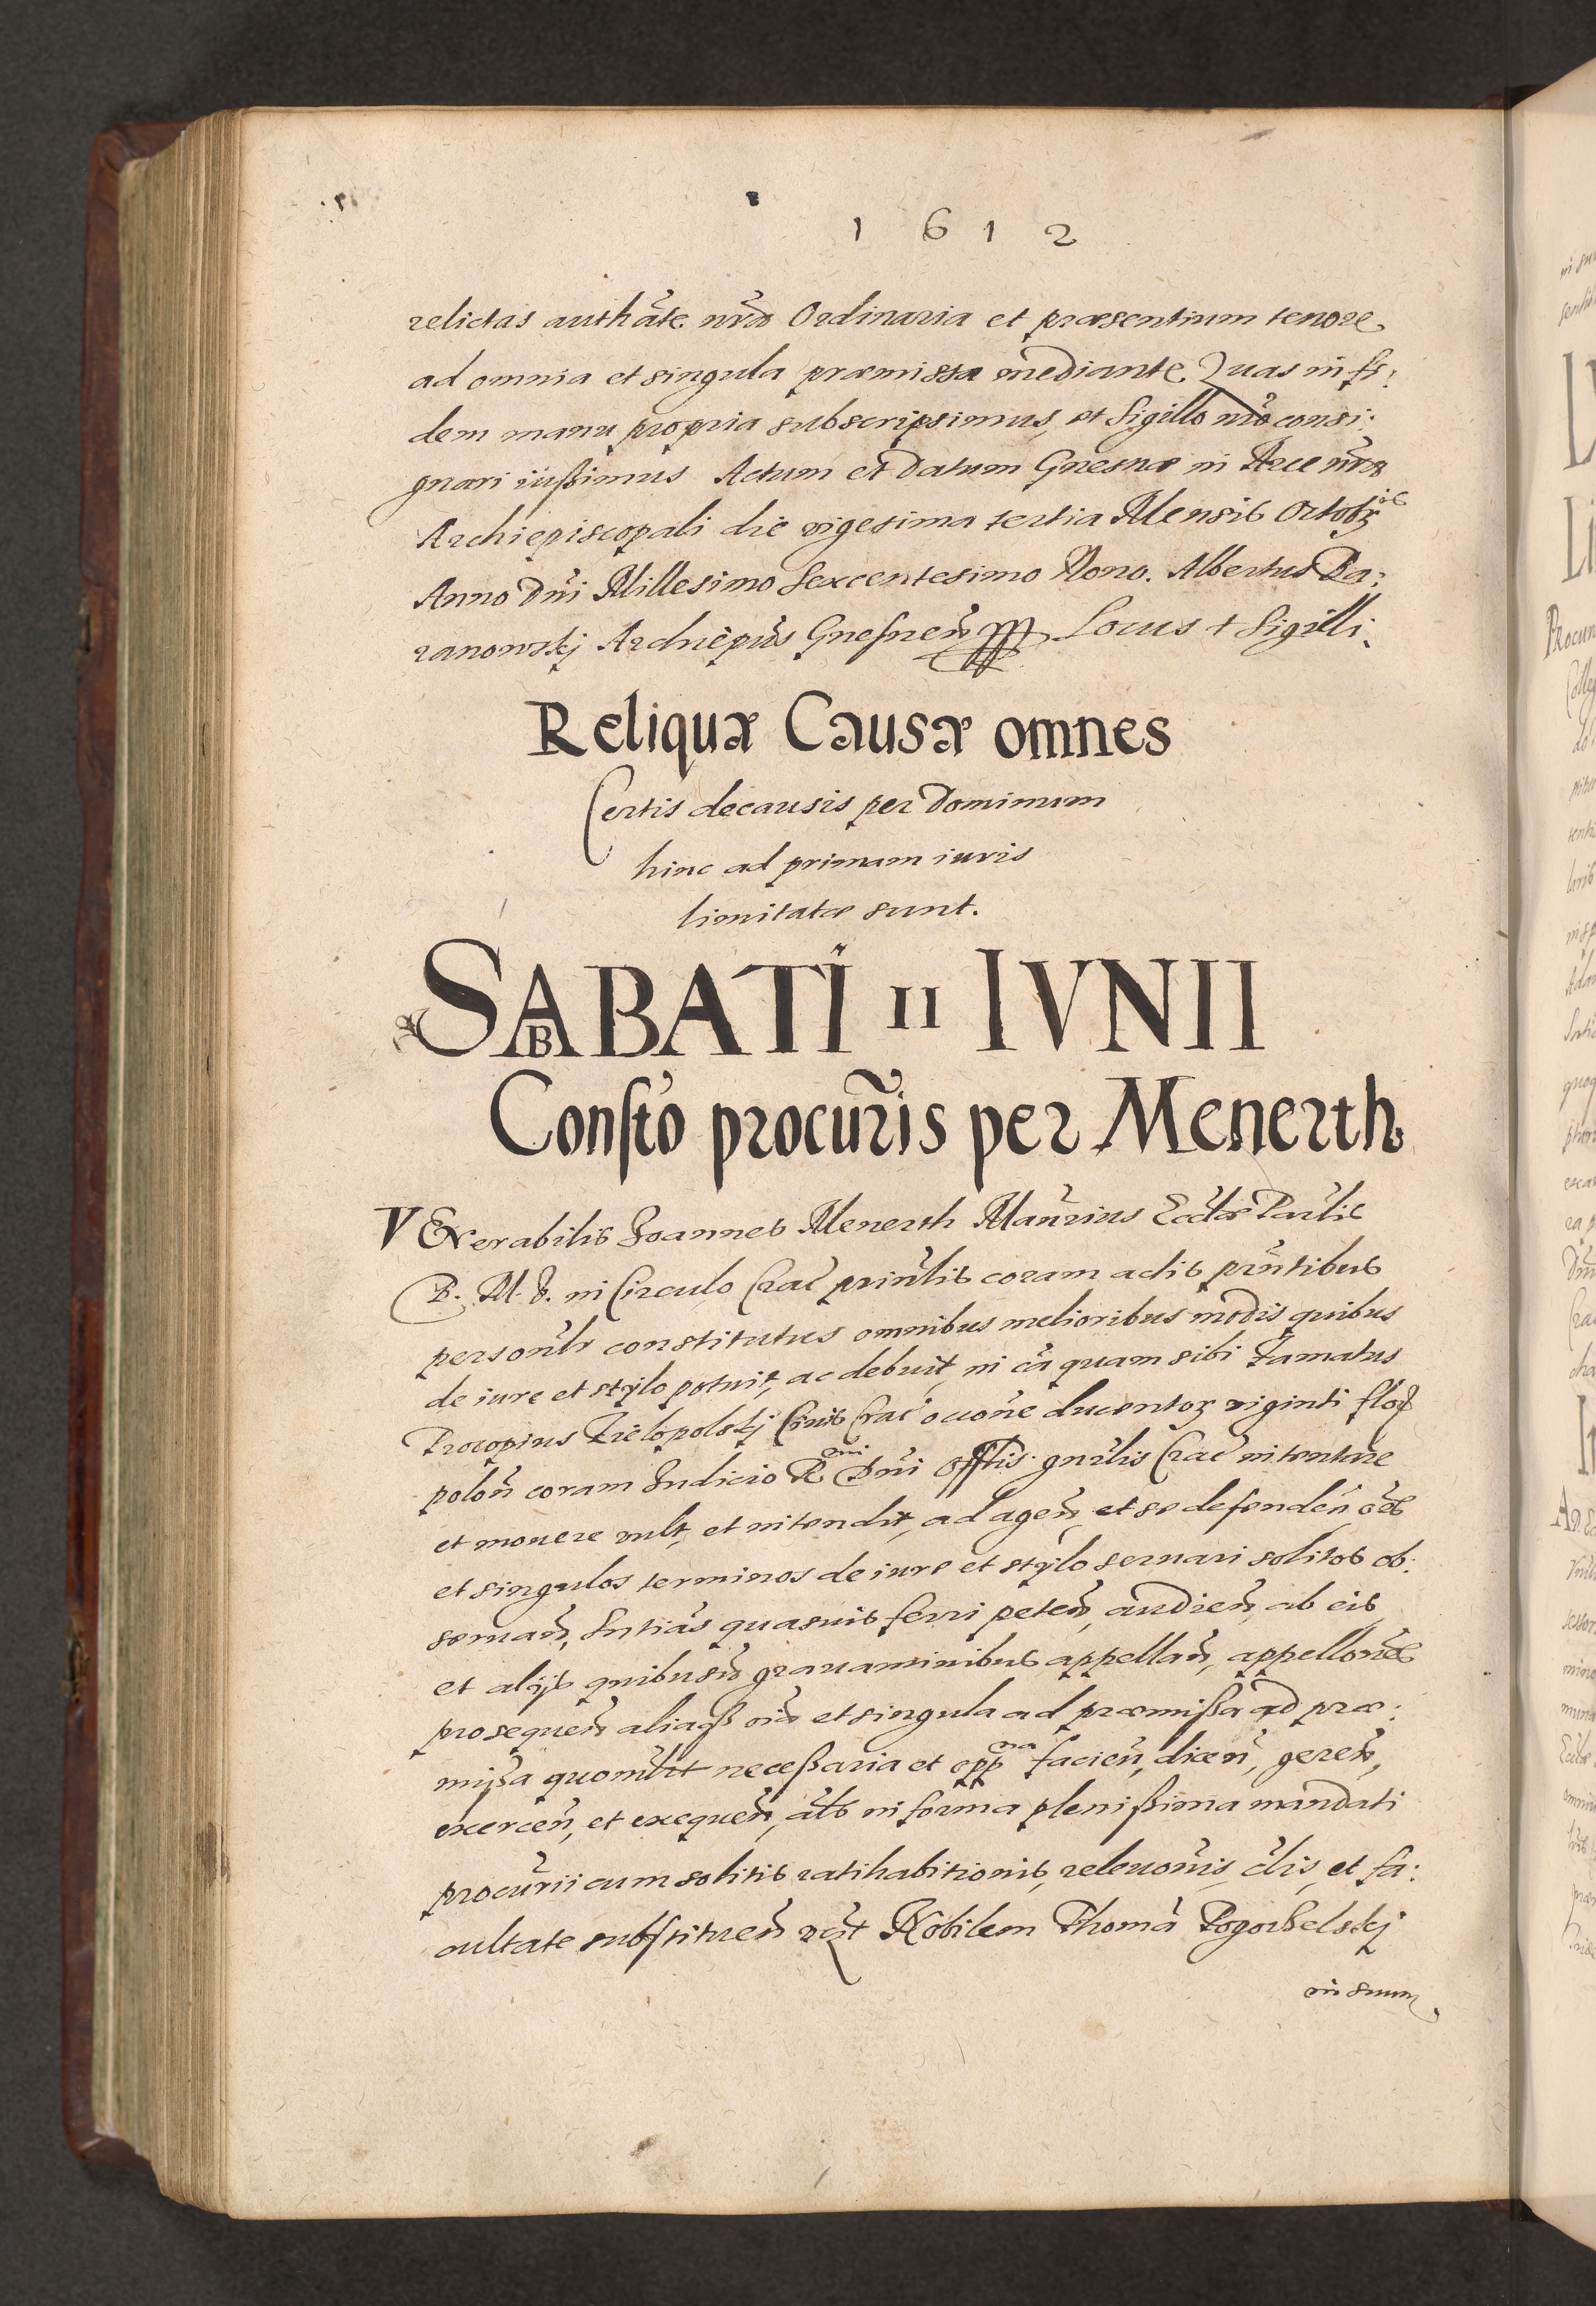 1612
relictas authāte nr̄a Ordinaria et præsentium tenore
ad omnia et singula præmissa mediante. Quas in fi:
dem manu propria subscripsimus, et Sigillo nr̄o consi:
gnari iußimus Actum et Datum Gnesnæ in Arce nr̄a
Archiepiscopali die vigesima tertia Mensis Octobris
Anno Dn̄i Millesimo Sexcentesimo Nono. Albertus Ba:
ranowskj Archiep̄us Gnesnen̄ Locus + Sigilli.
Reliquæ Causæ omnes
Certis de causis per Dominum
hinc ad primam iuris
limitatæ sunt.
SABBATI 11 IVNII
Consto procur̄is per Menerth
VENerabilis Joannes Menerth Man̄rius Eccl̄æ Par̄lis
B. M. V. in Circulo Crac̄ prin̄lis coram actis prn̄tibus
person̄lr constitutus omnibus melioribus modis quibus
de iure et stylo potuit, ac debuit, in cā quam sibi Famatus
Procopius Zielopolskj Civis Crac̄ occōne ducentoꝝ viginti floꝝ
polon̄ coram Judicio R ndi Dn̄i Offtis gn̄rlis Crac̄ intentare
et mouere vult, et intendit, ad agen̄, et se defenden̄, oēs
et singulos terminos de iure et stylo seruari solitos ob:
seruan̄, Sn̄tias quasuis ferri peten̄, audien̄, ab eis
et alijs quibusu̅s grauaminibus appellan̄, appellōnes
prosequen̄ aliaqꝫ oīa et singula ad præmißa ad præ:
mißa quomlt neceßaria et opp na facien̄, dicen̄, geren̄,
exercen̄, et exequen̄, als in forma plenißima mandati
procur̄ii cum solitis ratihabitionis, releuōnis, cl̄is, et fa:
cultate substituen̄ Nobilem Thomā Pogorßelskj
in suum